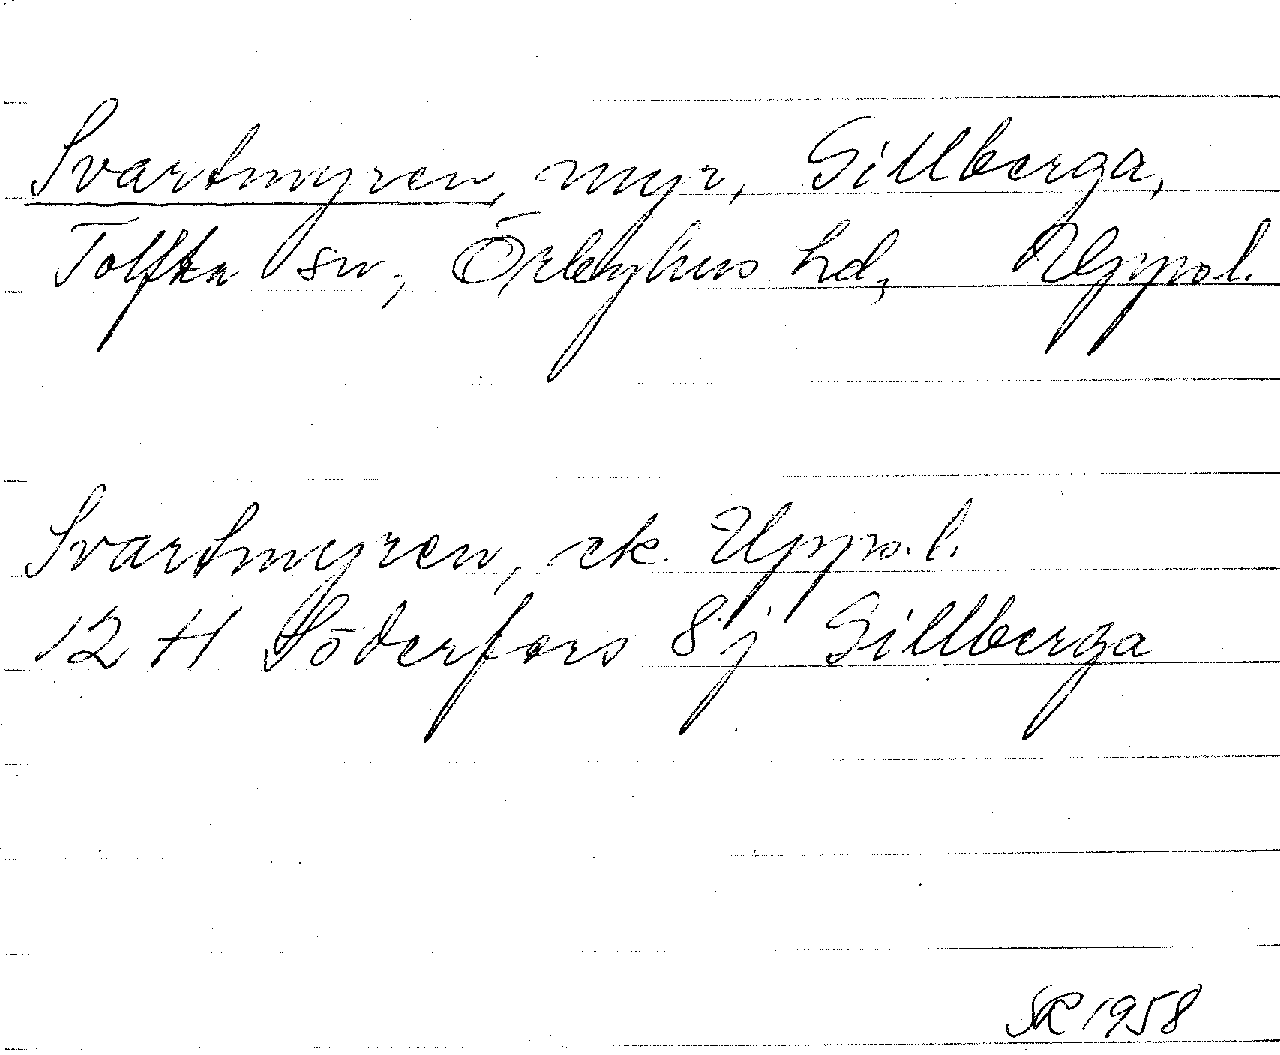 Svartmyren, myr, Gillberga,
Tolfta sn, Örbyhus hd, Uppsl.
Svartmyren, ek. Uppsl.
12 H Söderfors 8j Gillberga
SR 1958